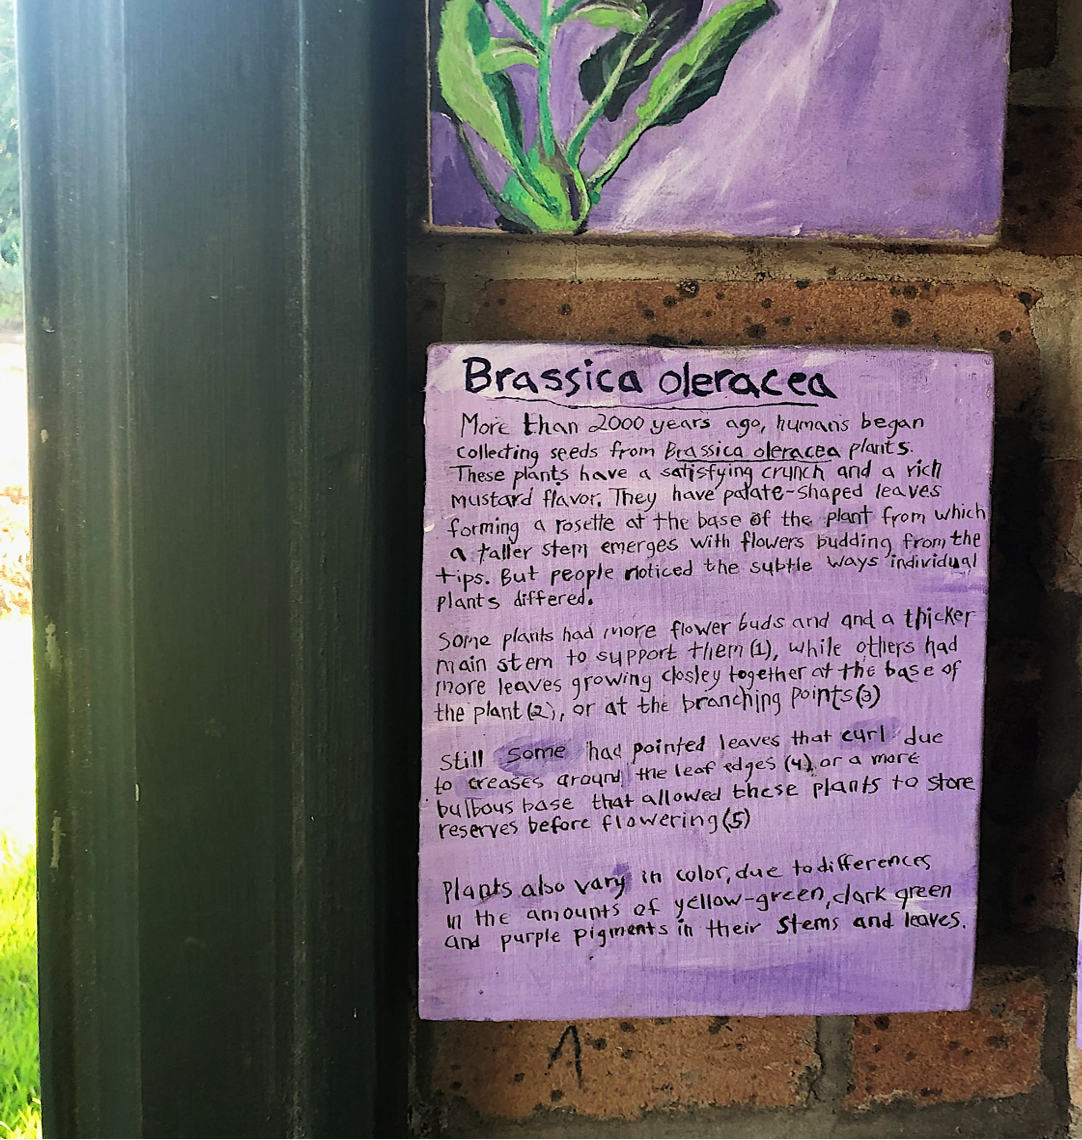 Brassica oleracea
More than 2000 years ago, humans began
collecting seeds from Brassica oleracea plants.
These plants have a satisfying crunch and a rich
mustard flavor. They have palate-shaped leaves
forming a rosette at the base of the plant from which
a taller stem emerges with flowers budding from the
tips. But people noticed the subtle ways individual
plants differed.
Some plants had more flower buds and and a thicker
main stem to support them (1), while others had
more leaves growing closley together at the base of
the plant (2), or at the branching points (3)
Still some had pointed leaves that curl due
to creases around the leaf edges (4) or a more
bulbous base that allowed these plants to store
reserves before flowering (5)
Plants also vary in color, due to differences
in the amounts of yellow-green, dark green
and purple pigments in their stems and leaves.